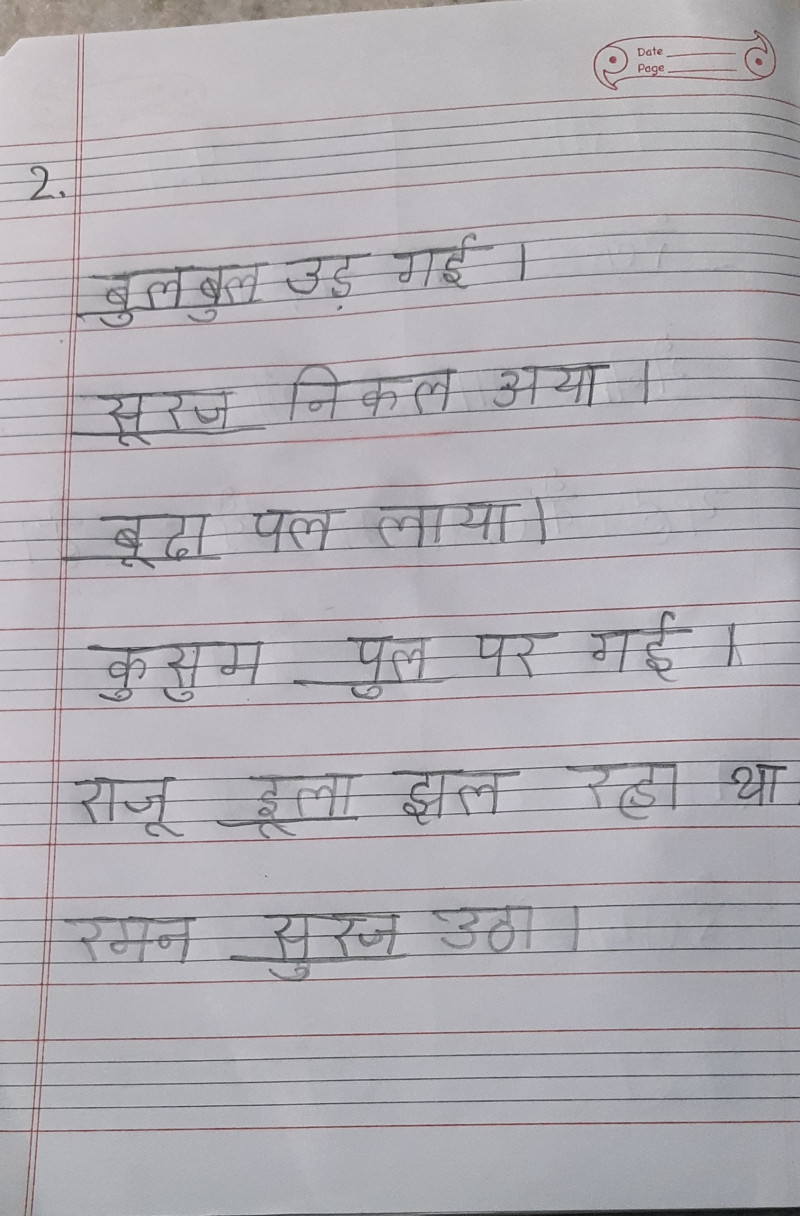 Date
Page
2.
बुलबुल उड़ गई।
सूरज निकल अया।
बूढा पल लाया।
कुसुम पुल पर गई।
राजू इूला झल रहा था
रमन सुरज उठा।